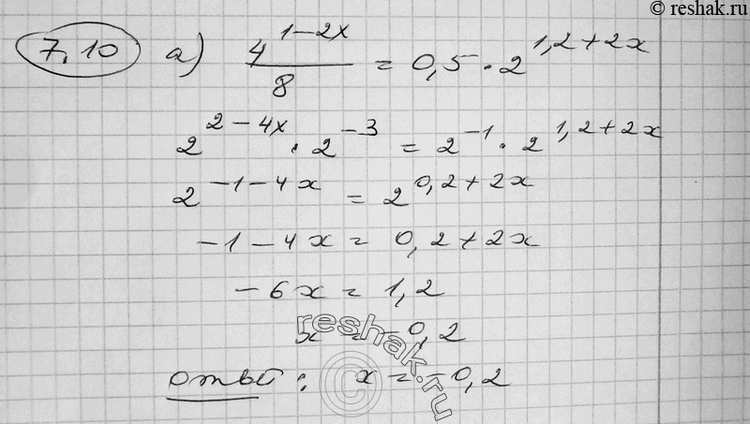 © reshak.ru
7.10 а) 4^(1-2x)/8 = 0,5 · 2^(1,2+2x)
2^(2-4x) · 2^(-3) = 2^(-1) · 2^(1,2+2x)
2^(-1-4x) = 2^(0,2+2x)
-1-4x = 0,2+2x
-6x = 1,2
x = -0,2
ответ: x = -0,2
reshak.ru
©